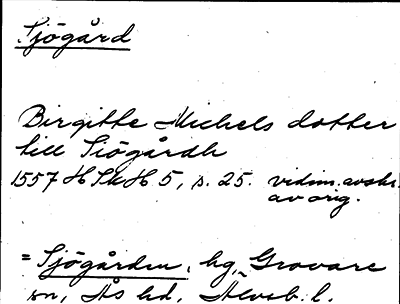 Sjögård
Birgitte Michels dotter
till Siögårdh
1557 HSkH 5, s. 25. vidim. avskr.
av orig.
= Sjögården, hg, Grovare
sn, Ås hd, Älvsb. l.